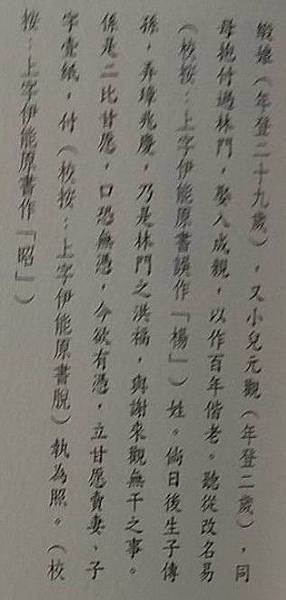 緞娘（年登二十九歲），又小兒元觀（年登二歲），同
母抱付過林門，娶入成親，以作百年偕老。聽從改名易
（校按：上字伊能原書誤作「楊」）姓。倘日後生子傳
孫，弄璋兆慶，乃是林門之洪福，與謝來觀無干之事。
係是二比甘愿，口恐無憑，今欲有憑，立甘愿賣妻、子
字壹紙，付（校按：上字伊能原書脫）執為照。（校
按：上字伊能原書作「昭」）